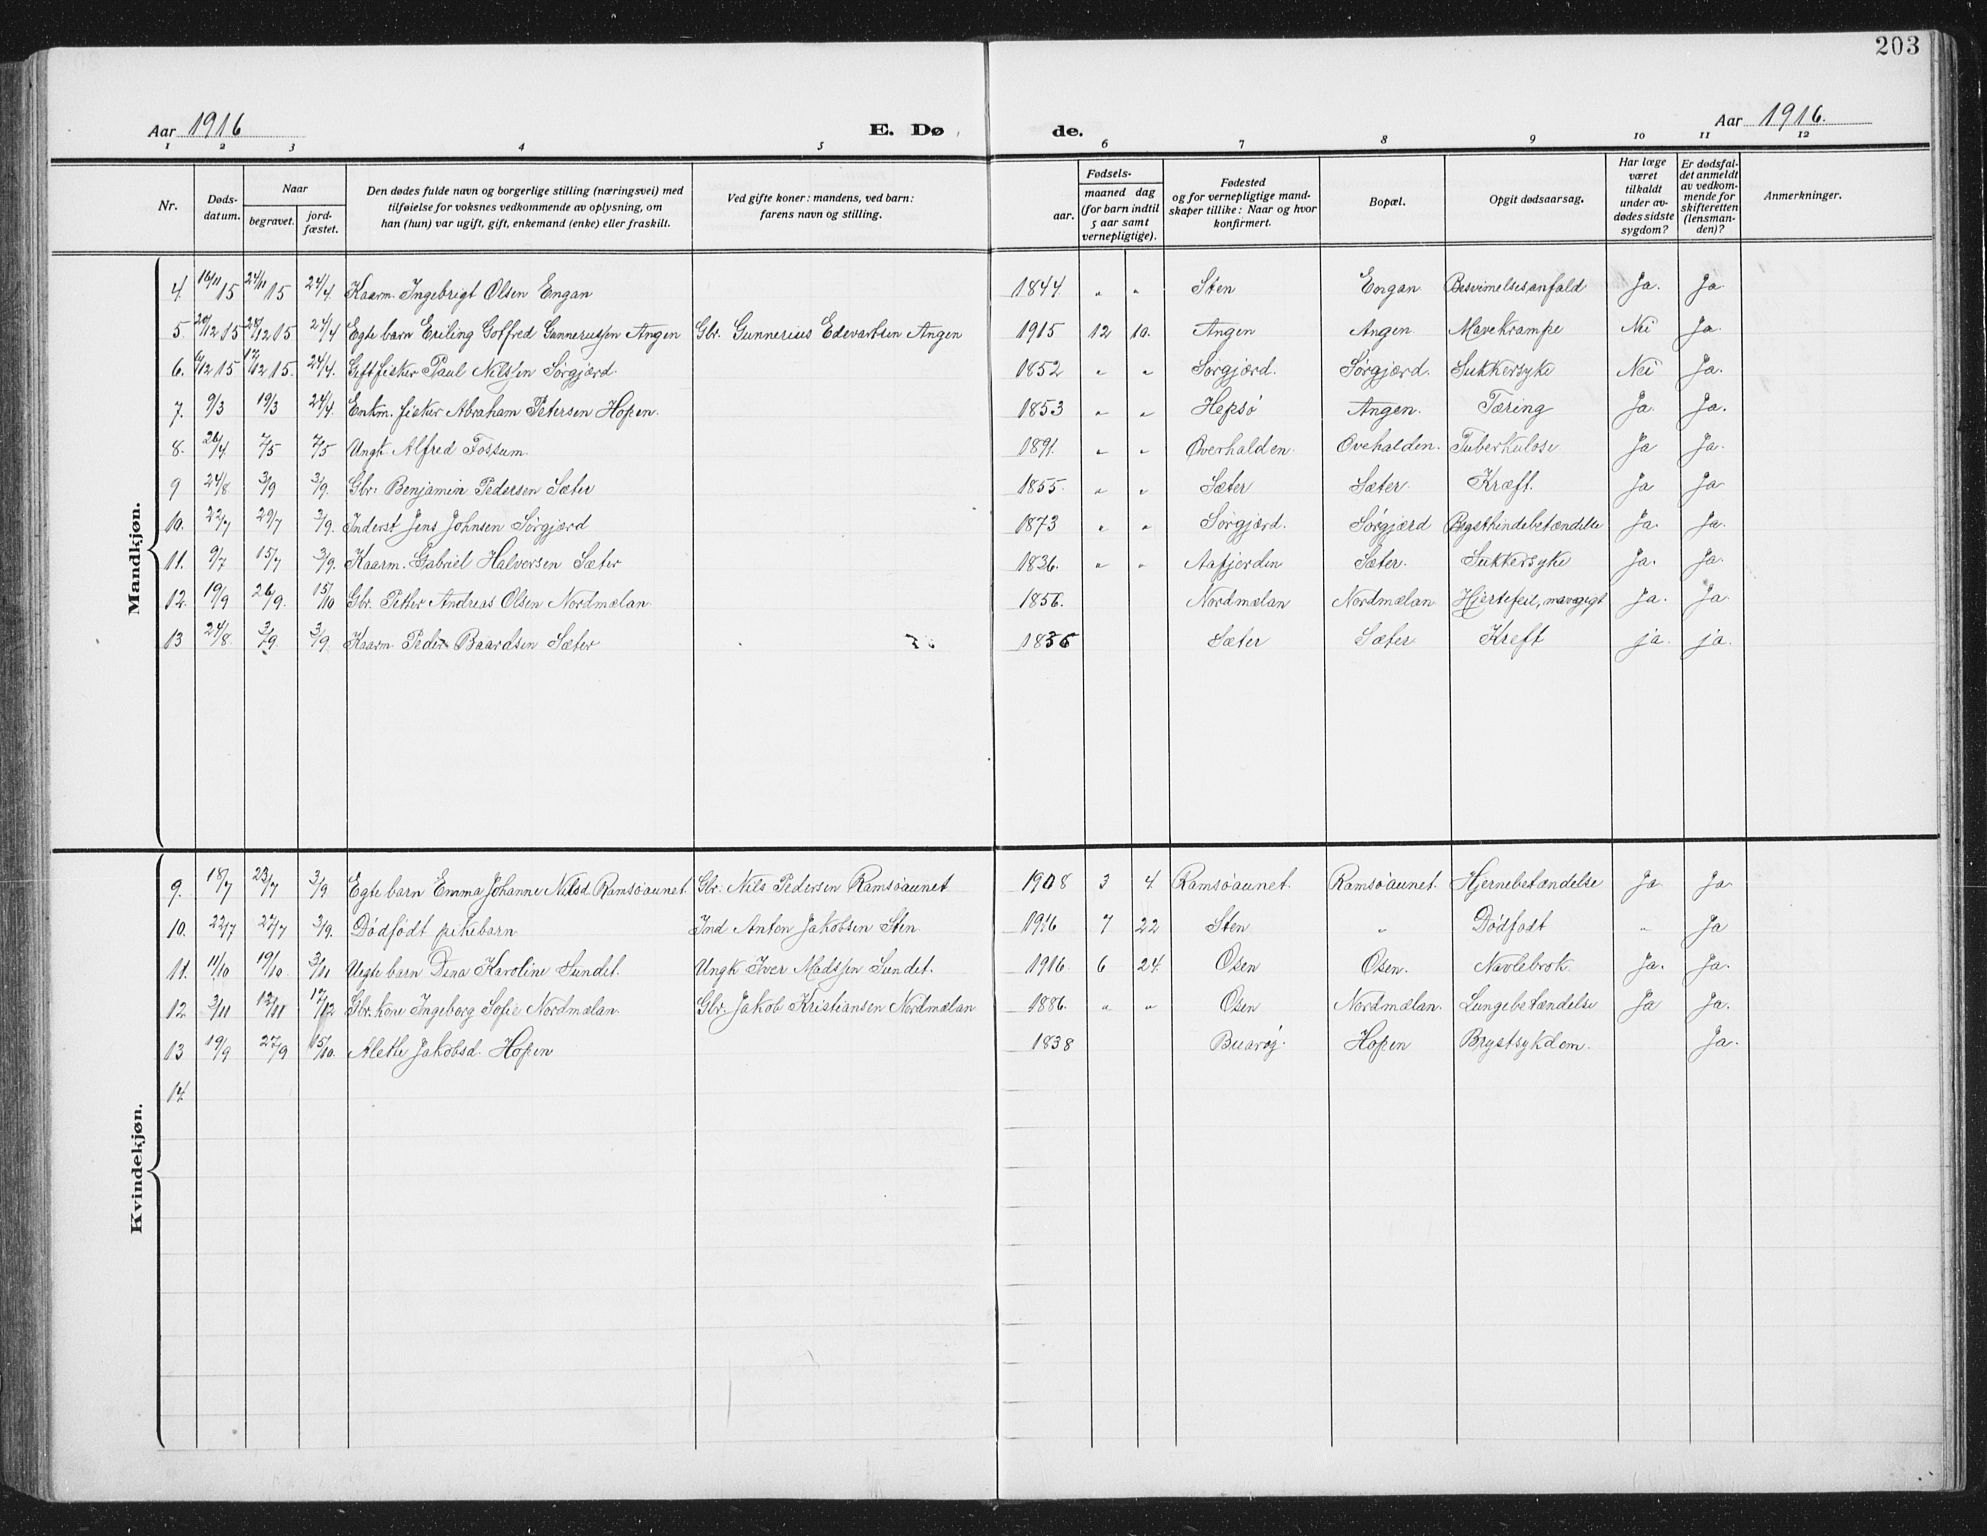 203
Aar 1916 E. Døde. Aar 1916.
1 2 3 4 5 6 7 8 9 10 11 12
Nr. Døds-datum. Naar begravet. jord-fæstet. Den dødes fulde navn og borgerlige stilling (næringsvei) med tilføielse for voksnes vedkommende av oplysning, om han (hun) var ugift, gift, enkemand (enke) eller fraskilt. Ved gifte koner: mandens, ved barn: farens navn og stilling. Fødsels- aar. maaned dag (for barn indtil 5 aar samt vernepligtige). Fødested og for vernepligtige mand-skaper tillike: Naar og hvor konfirmert. Bopæl. Opgit dødsaarsag. Har læge været tilkaldt under av-dødes sidste sygdom? Er dødsfal-det anmeldt av vedkom-mende for skifteretten (lensman-den)? Anmerkninger.
Mandkjøn.
4. 16/11 15 24/11 15 24/4. Kaarm. Ingebrigt Olsen Engan 1844 " " Sten Engan Besvimelsesanfald Ja. Ja
5. 20/12 15 12 15 24/4 Egte barn Erling Gotfred Gunnerussen Angen Gbr. Gunnerius Edevartsen Angen 1915 12 10. Angen Angen Mavekrampe Nei Ja.
6. /12 15 17/12 15. 24/4. Gift fisker Paul Nilssen Sørgjærd. 1852 " " Sørgjærd. Sørgjærd. Sukkersyke Nei Ja.
7. 9/3 19/3 24/4. Enkm. fisker Abraham Petersen Hopen. 1853 " " Hepsø Angen. Tæring Ja. Ja.
8. 26/4 7/5 7/5 Ungk. Alfred Fossum. 1891. " " Overhalden. Ovehalden. Tuberkulose Ja Ja.
9 24/8 3/9 3/9. Gbr: Benjamin Pedersen Sæter 1855. " " Sæter Sæter. Kræft. Ja Ja
10. 22/7 29/7 3/9. Inderst Jens Johnsen Sørgjærd 1873 " " Sørgjærd. Sørgjærd Brysthindebetændelse Ja. Ja.
11. 9/7 15/7 3/9. Kaarm. Gabriel Halversen Sæter 1836. " " Aafjorden Sæter. Sukkersyke Ja. Ja.
12. 19/9 26/9. 15/10 Gbr. Petter Andreas Olsen Nordmælan. 1856. Nordmælan Nordmælan Hjertefeil, mavegigt Ja. Ja.
13 24/8. 3/9 3/9. Kaarm. Peder Baardsen Sæter 1836 Sæter Sæter Kreft ja. ja.
Kvindekjøn.
9. 18/7 23/7 3/9 Egte barn Emma Johanne Nilsd. Ramsøaunet Gbr: Nils Pedersen Ramsøaunet 1908 3 4. Ramsøaunet. Ramsøaunet. Hjernebetændelse Ja Ja.
10. 22/7 27/7 3/9. Dødfødt pikebarn Ind Anton Jakobsen Sten 1916 7 22 Sten " Dødfødt " Ja
11. 11/10 19/10. 3/11 Uegte barn Dina Karoline Sundet. Ungk Iver Madssen Sundet. 1916. 6 24. Osen Osen. Navlebrok. Ja. Ja.
12 3/11 12/11 17/12 Gbr. kone Ingeborg Sofie Nordmælan. Gbr. Jakob Kristiansen Nordmælan 1886. " " Osen Nordmælan. Lungebetændelse Ja Ja.
13 19/9 27/9 15/10. Alette Jakobsd. Hopen 1838 Buarøy. Hopen Brystsykdom. Ja.
14.